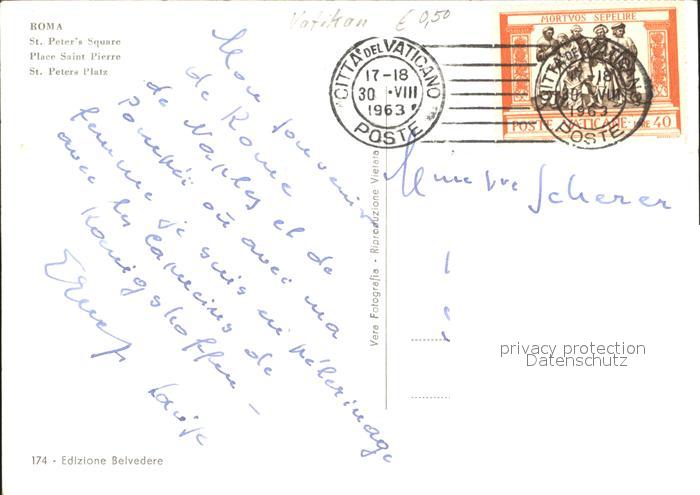 ROMA
St. Peter's Square
Place Saint Pierre
St. Peters Platz
Vatikan € 0,50
CITTA' DEL VATICANO
17-18
30 ·VIII
1963
POSTE
MORTVOS SEPELIRE
CITTA' DEL VATICANO
-18
30 VIII
1963
POSTE
POSTE VATICANE LIRE 40
Mon souvenir
de Rome
de Naples et de
Pompéi où avec ma
femme je suis en pèlerinage
avec les capucins de
Koenigshoffen -
Ernest
Mme Vve Scherer
Vera Fotografia - Riproduzione Vietata
privacy protection
Datenschutz
174 - Edizione Belvedere